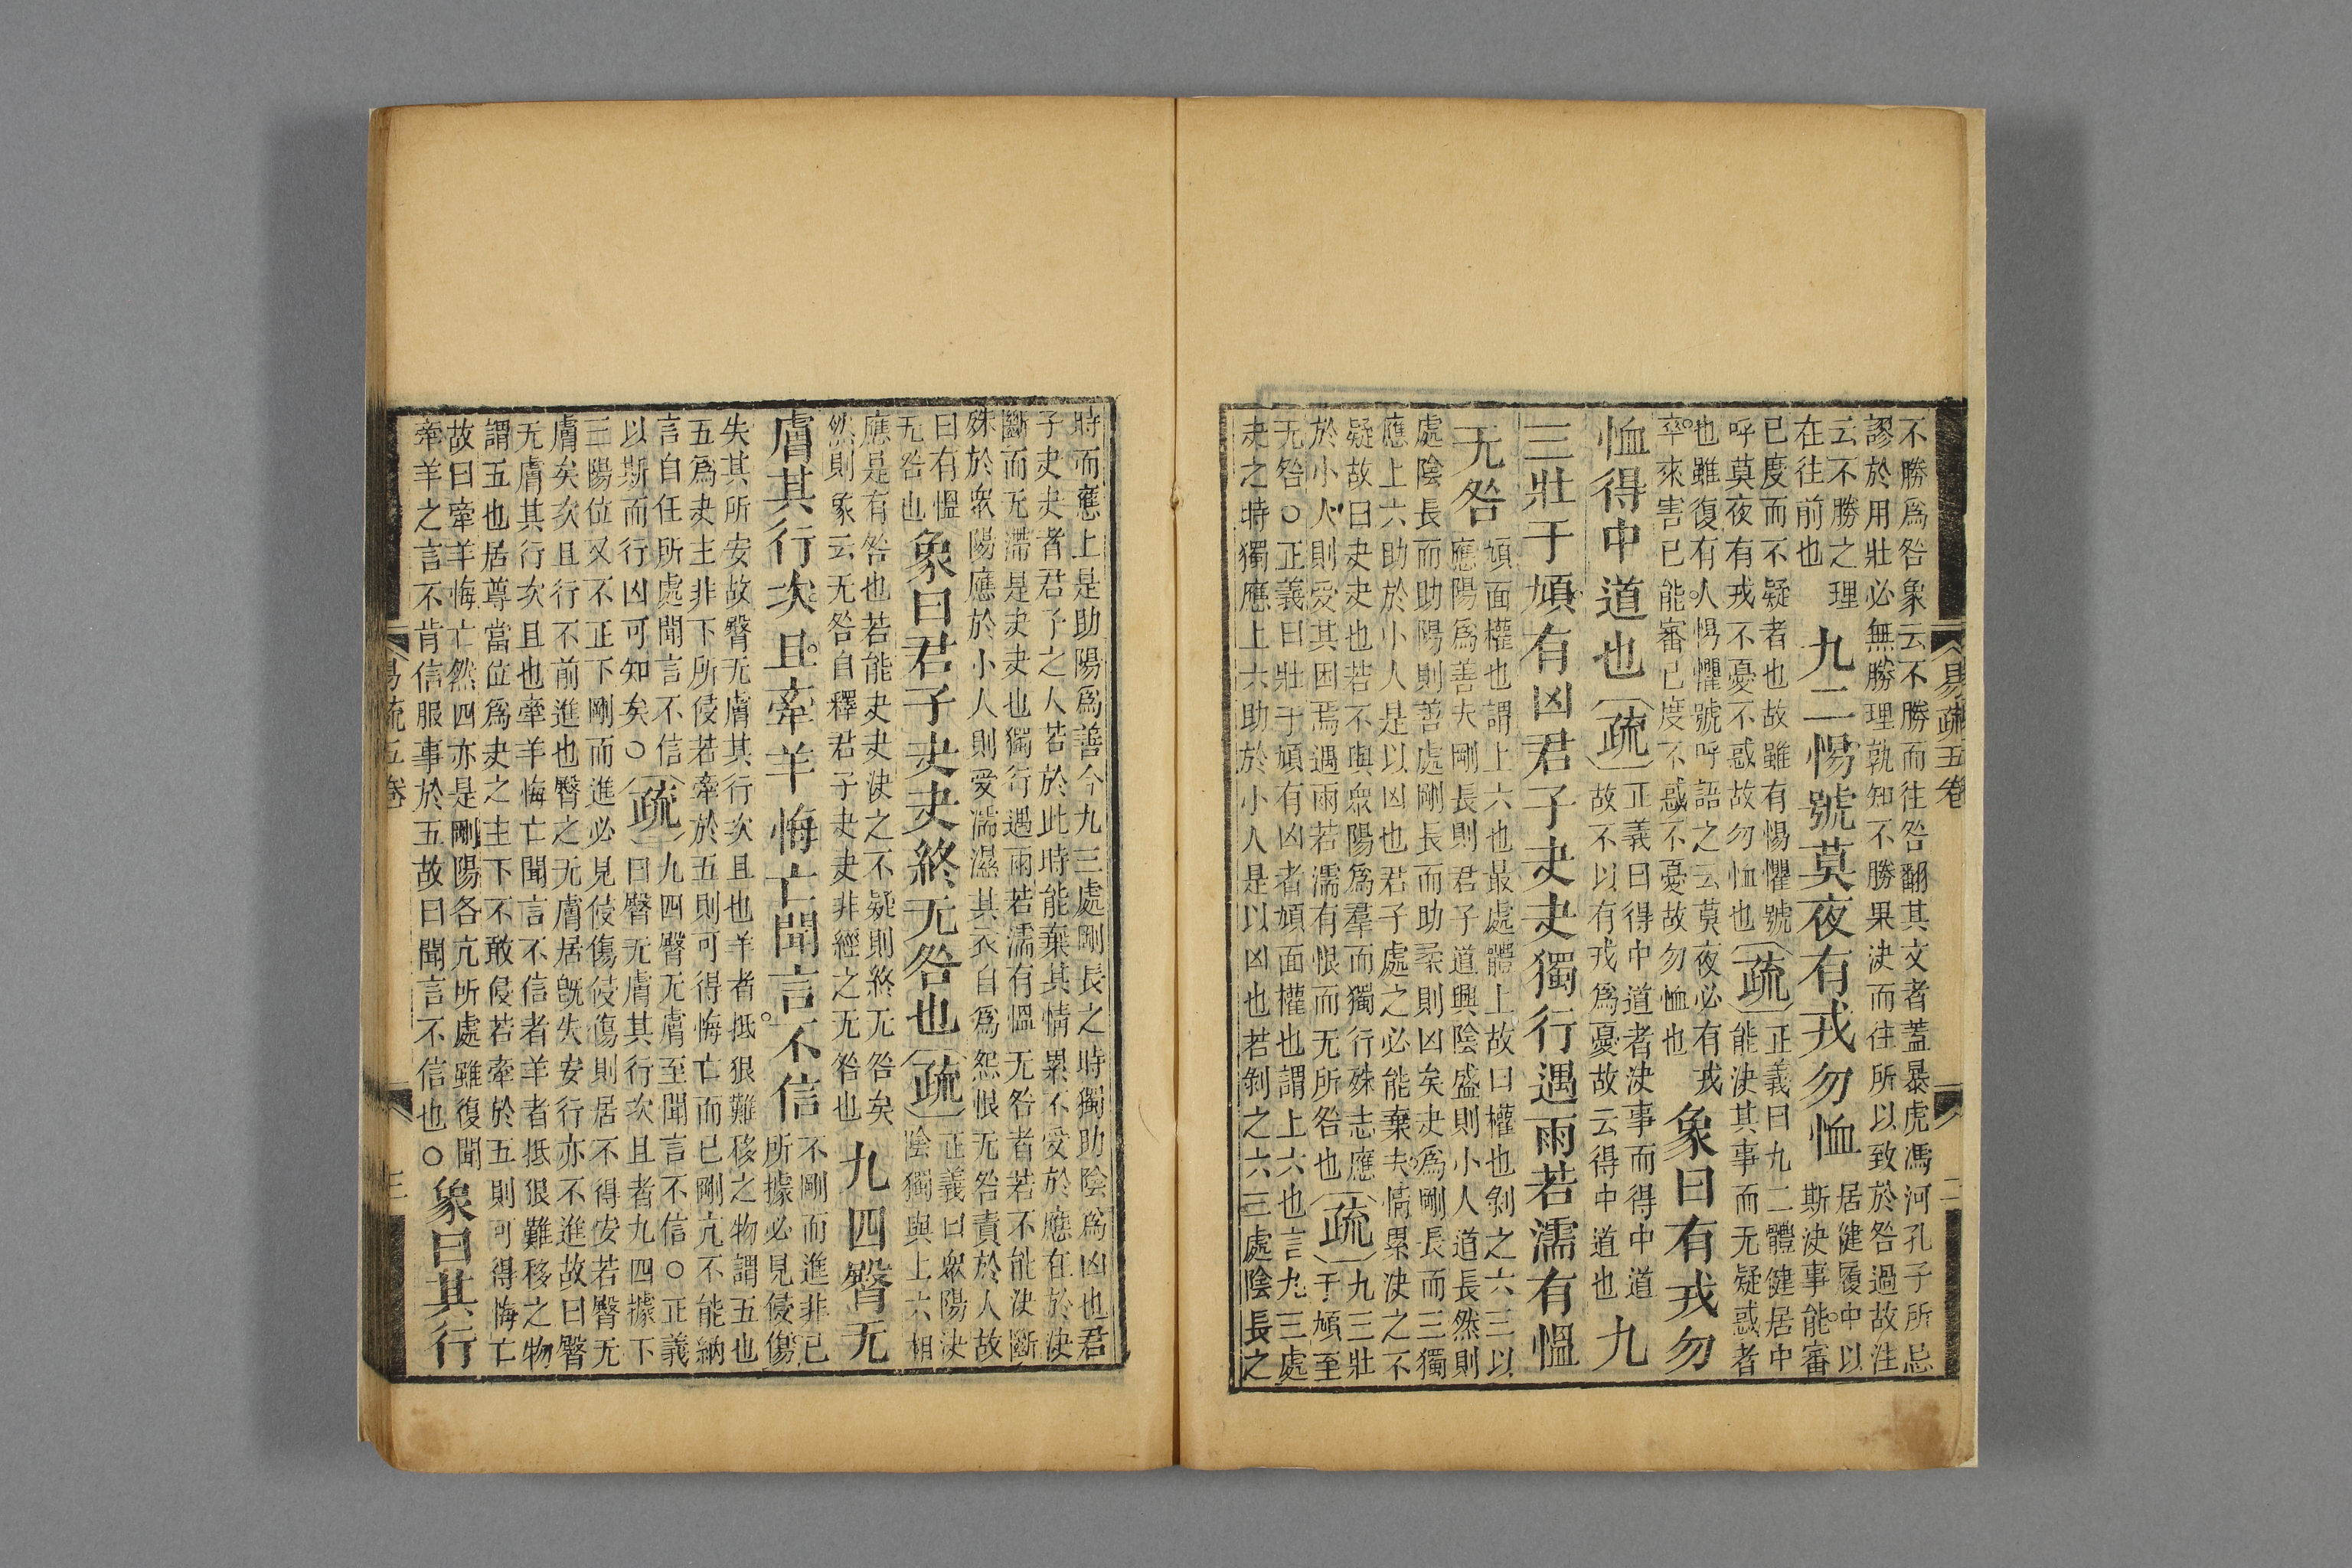 易疏五卷
二
不勝爲咎象云不勝而往咎翻其文者蓋暴虎馮河孔子所忌
謬於用壯必無勝理孰知不勝果決而往所以致於咎過故注
云不勝之理
在往前也
九二惕號莫夜有戎勿恤
居健履中以
斯決事能審
已度而不疑者也故雖有惕懼號
呼莫夜有戎不憂不惑故勿恤也
疏
正義曰九二體健居中
能決其事而无疑惑者
也雖復有人惕懼號呼語之云莫夜必有戎
卒來害已能審已度不惑不憂故勿恤也
象曰有戎勿
恤得中道也
疏
正義曰得中道者決事而得中道
故不以有戎爲憂故云得中道也
九
三壯于頄有凶君子夬夬獨行遇雨若濡有慍
无咎
頄面權也謂上六也最處體上故曰權也剝之六三以
應陽爲善夫剛長則君子道興陰盛則小人道長然則
處陰長而助陽則善處剛長而助柔則凶矣夬爲剛長而三獨
應上六助於小人是以凶也君子處之必能棄夫情累決之不
疑故曰夬夬也若不與衆陽爲羣而獨行殊志應
於小人則受其困焉遇雨若濡有恨而无所咎也
疏
九三壯
于頄至
无咎○正義曰壯于頄有凶者頄面權也謂上六也言九三處
夬之時獨應上六助於小人是以凶也若剝之六三處陰長之
時而應上是助陽爲善今九三處剛長之時獨助陰爲凶也君
子夬夬者君子之人若於此時能棄其情累不受於應在於決
斷而无滯是夬夬也獨行遇雨若濡有慍无咎者若不能決斷
殊於衆陽應於小人則受濡濕其衣自爲怨恨无咎責於人故
曰有慍
无咎也
象曰君子夬夬終无咎也
疏
正義曰衆陽決
陰獨與上六相
應是有咎也若能夬夬決之不疑則終无咎矣
然則象云无咎自釋君子夬夬非經之无咎也
九四臀无
膚其行次且牽羊悔亡聞言不信
不剛而進非已
所據必見侵傷
失其所安故臀无膚其行次且也羊者抵狠難移之物謂五也
五爲夬主非下所侵若牽於五則可得悔亡而已剛亢不能納
言自任所處聞言不信
以斯而行凶可知矣○
疏
九四臀无膚至聞言不信○正義
曰臀无膚其行次且者九四據下
三陽位又不正下剛而進必見侵傷侵傷則居不得安若臀无
膚矣次且行不前進也臀之无膚居旣失安行亦不進故曰臀
无膚其行次且也牽羊悔亡聞言不信者羊者抵狠難移之物
謂五也居尊當位爲夬之主下不敢侵若牽於五則可得悔亡
故曰牽羊悔亡然四亦是剛陽各亢所處雖復聞
牽羊之言不肯信服事於五故曰聞言不信也○
象曰其行
易疏五卷
三